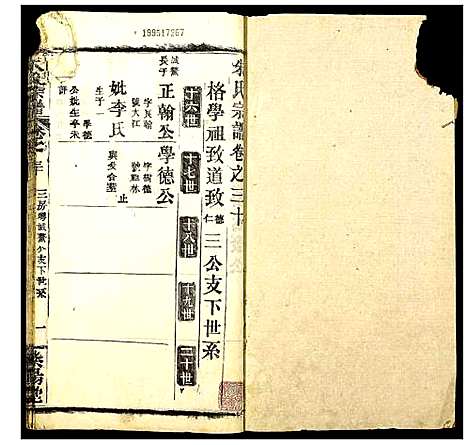 199517267
朱氏宗譜卷之三十
格學祖致道政德仁三公支下世系
十六世
十七世
十八世
十九世
二十世
誠鰲長子
正翰公
字良翰
號大江
妣李氏
生子一
學德公
字樹德
號獻林
與父合塋
止
學德
公妣生卒未
詳
三房粵誠鰲公支下世系
一
紫陽堂